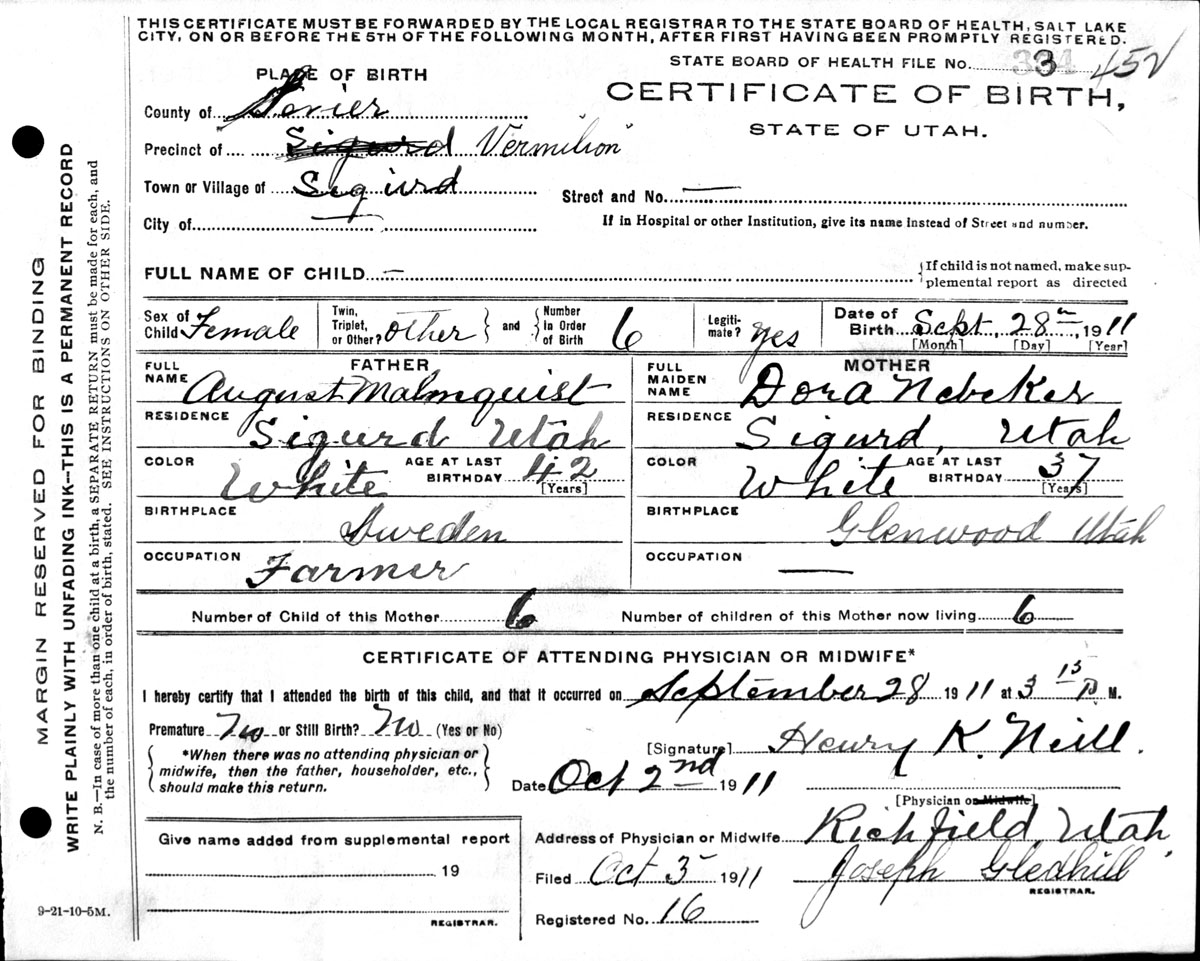 THIS CERTIFICATE MUST BE FORWARDED BY THE LOCAL REGISTRAR TO THE STATE BOARD OF HEALTH, SALT LAKE
CITY, ON OR BEFORE THE 5TH OF THE FOLLOWING MONTH, AFTER FIRST HAVING BEEN PROMPTLY REGISTERED.
STATE BOARD OF HEALTH FILE NO. 3 452
PLACE OF BIRTH
CERTIFICATE OF BIRTH,
STATE OF UTAH.
County of Sevier
Precinct of Sigurd Vermilion
Town or Village of Sigurd
Street and No. —
City of —
If in Hospital or other Institution, give its name instead of Street and number.
FULL NAME OF CHILD — {If child is not named, make sup-
plemental report as directed
Sex of Child Female Twin, Triplet, or Other? other and Number In Order of Birth 6 Legiti-mate? yes Date of Birth Sept, 28th, 1911
[Month] [Day] [Year]
FATHER MOTHER
FULL NAME August Malmquist FULL MAIDEN NAME Dora Nebeker
RESIDENCE Sigurd Utah RESIDENCE Sigurd, Utah
COLOR White AGE AT LAST BIRTHDAY 42 [Years] COLOR White AGE AT LAST BIRTHDAY 37 [Years]
BIRTHPLACE Sweden BIRTHPLACE Glenwood Utah
OCCUPATION Farmer OCCUPATION —
Number of Child of this Mother 6 Number of children of this Mother now living 6
CERTIFICATE OF ATTENDING PHYSICIAN OR MIDWIFE*
I hereby certify that I attended the birth of this child, and that it occurred on September 28 1911 at 3 15 P. M.
Premature No or Still Birth? No (Yes or No)
*When there was no attending physician or
midwife, then the father, householder, etc.,
should make this return.
[Signature] Henry K. Neill.
Date Oct 2nd 1911
[Physician or Midwife]
Give name added from supplemental report
19
REGISTRAR.
Address of Physician or Midwife Richfield, Utah
Filed Oct 3 1911 Joseph Gledhill
REGISTRAR.
Registered No. 16
9-21-10-5M.
MARGIN RESERVED FOR BINDING
WRITE PLAINLY WITH UNFADING INK--THIS IS A PERMANENT RECORD
N. B.—In case of more than one child at a birth, a SEPARATE RETURN must be made for each, and
the number of each, in order of birth, stated. SEE INSTRUCTIONS ON OTHER SIDE.